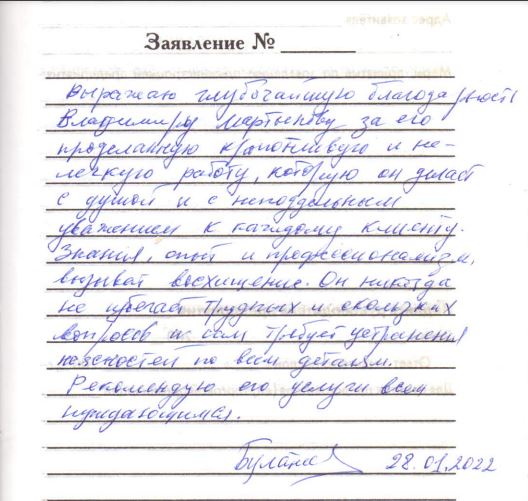 Заявление №
Выражаю глубочайшую благодарность
Владимиру Мартынову за его
проделанную кропотливую и не-
легкую работу, которую он делает
с душой и с неподдельным
уважением к каждому клиенту.
Знания, опыт и профессионализм,
вызыват восхищение. Он никогда
не избегает трудных и скользких
вопросов и сам требует устранения
неясностей по всем деталям.
Рекомендую его услуги всем
нуждающимся.
28.01.2022